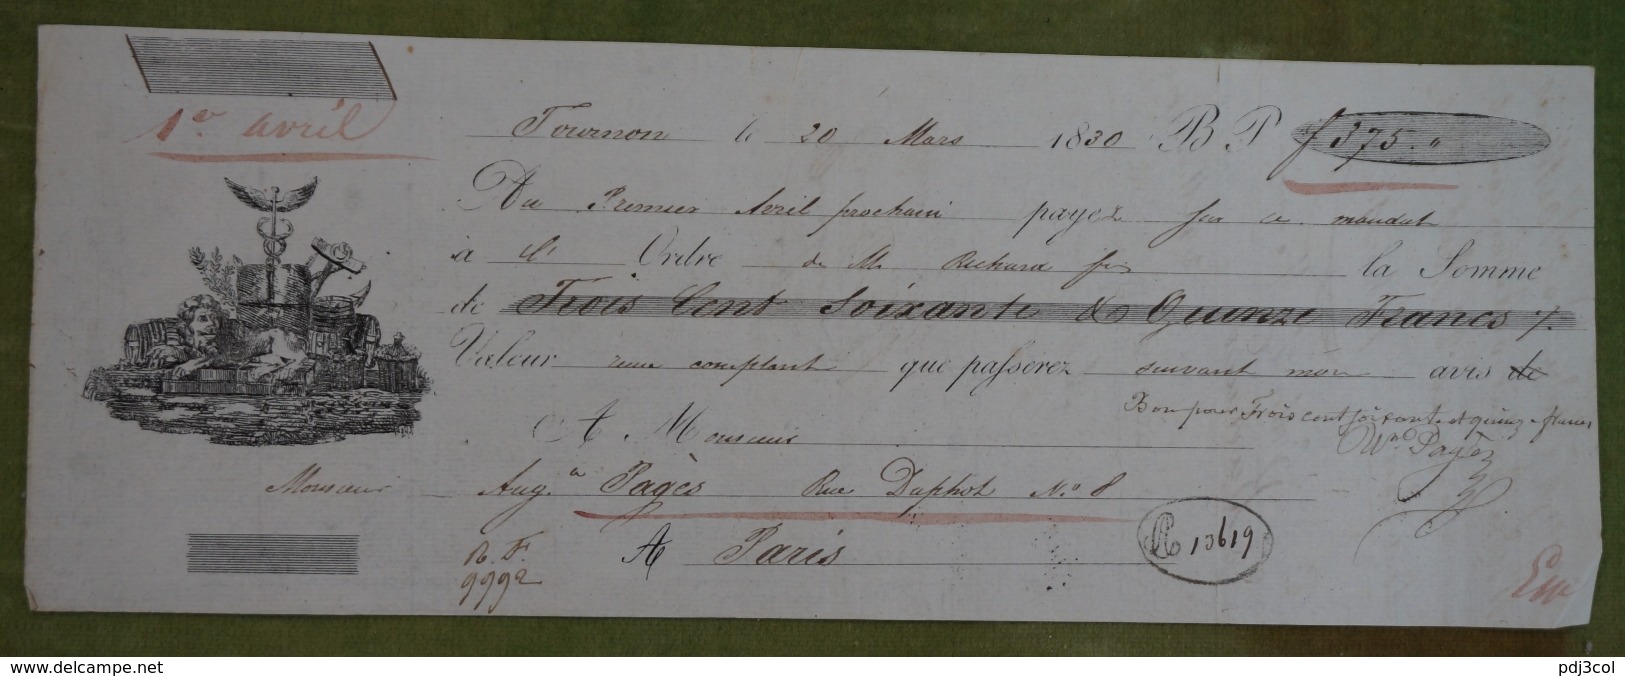 1er avril
Tournon le 20 Mars 1830 B P f 375. "
Au Premier Avril prochain payez sur ce mandat
à l' Ordre de Mr Richard fis la Somme
de Trois Cent Soixante & Quinze Francs
Valeur reçue comptant que passerez suivant mon avis de
Bon pour Trois cent soixante et quinze francs
A Monsieur
Pagès
Monsieur Augte Pagès Rue Duphot No 8
A Paris
R 13619
R. F.
9992
www.delcampe.net
pdj3col